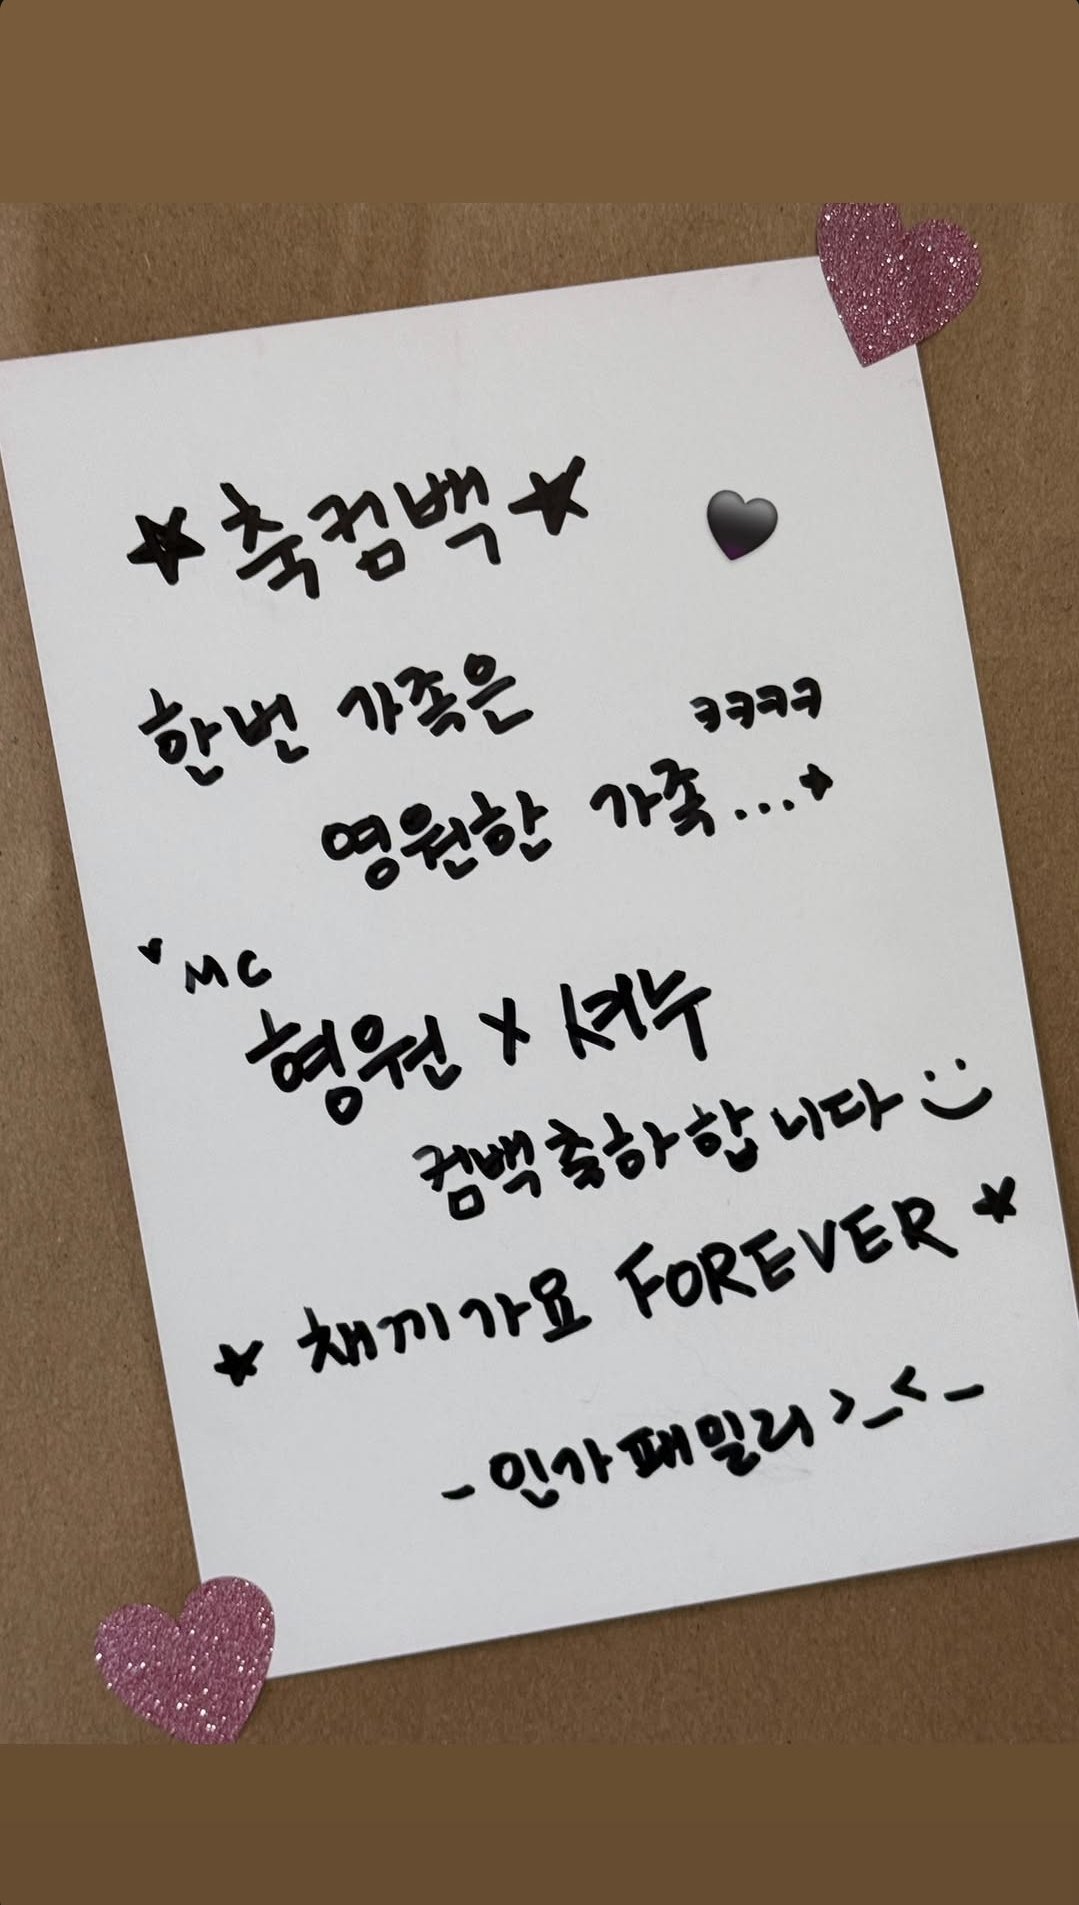 ★축컴백★
한번 가족은
ㅋㅋㅋㅋ
영원한 가족...★
♥MC
형원 X 셔누
컴백축하합니다 :)
★ 채끼가요 FOREVER ★
- 인가패밀리 >_< -